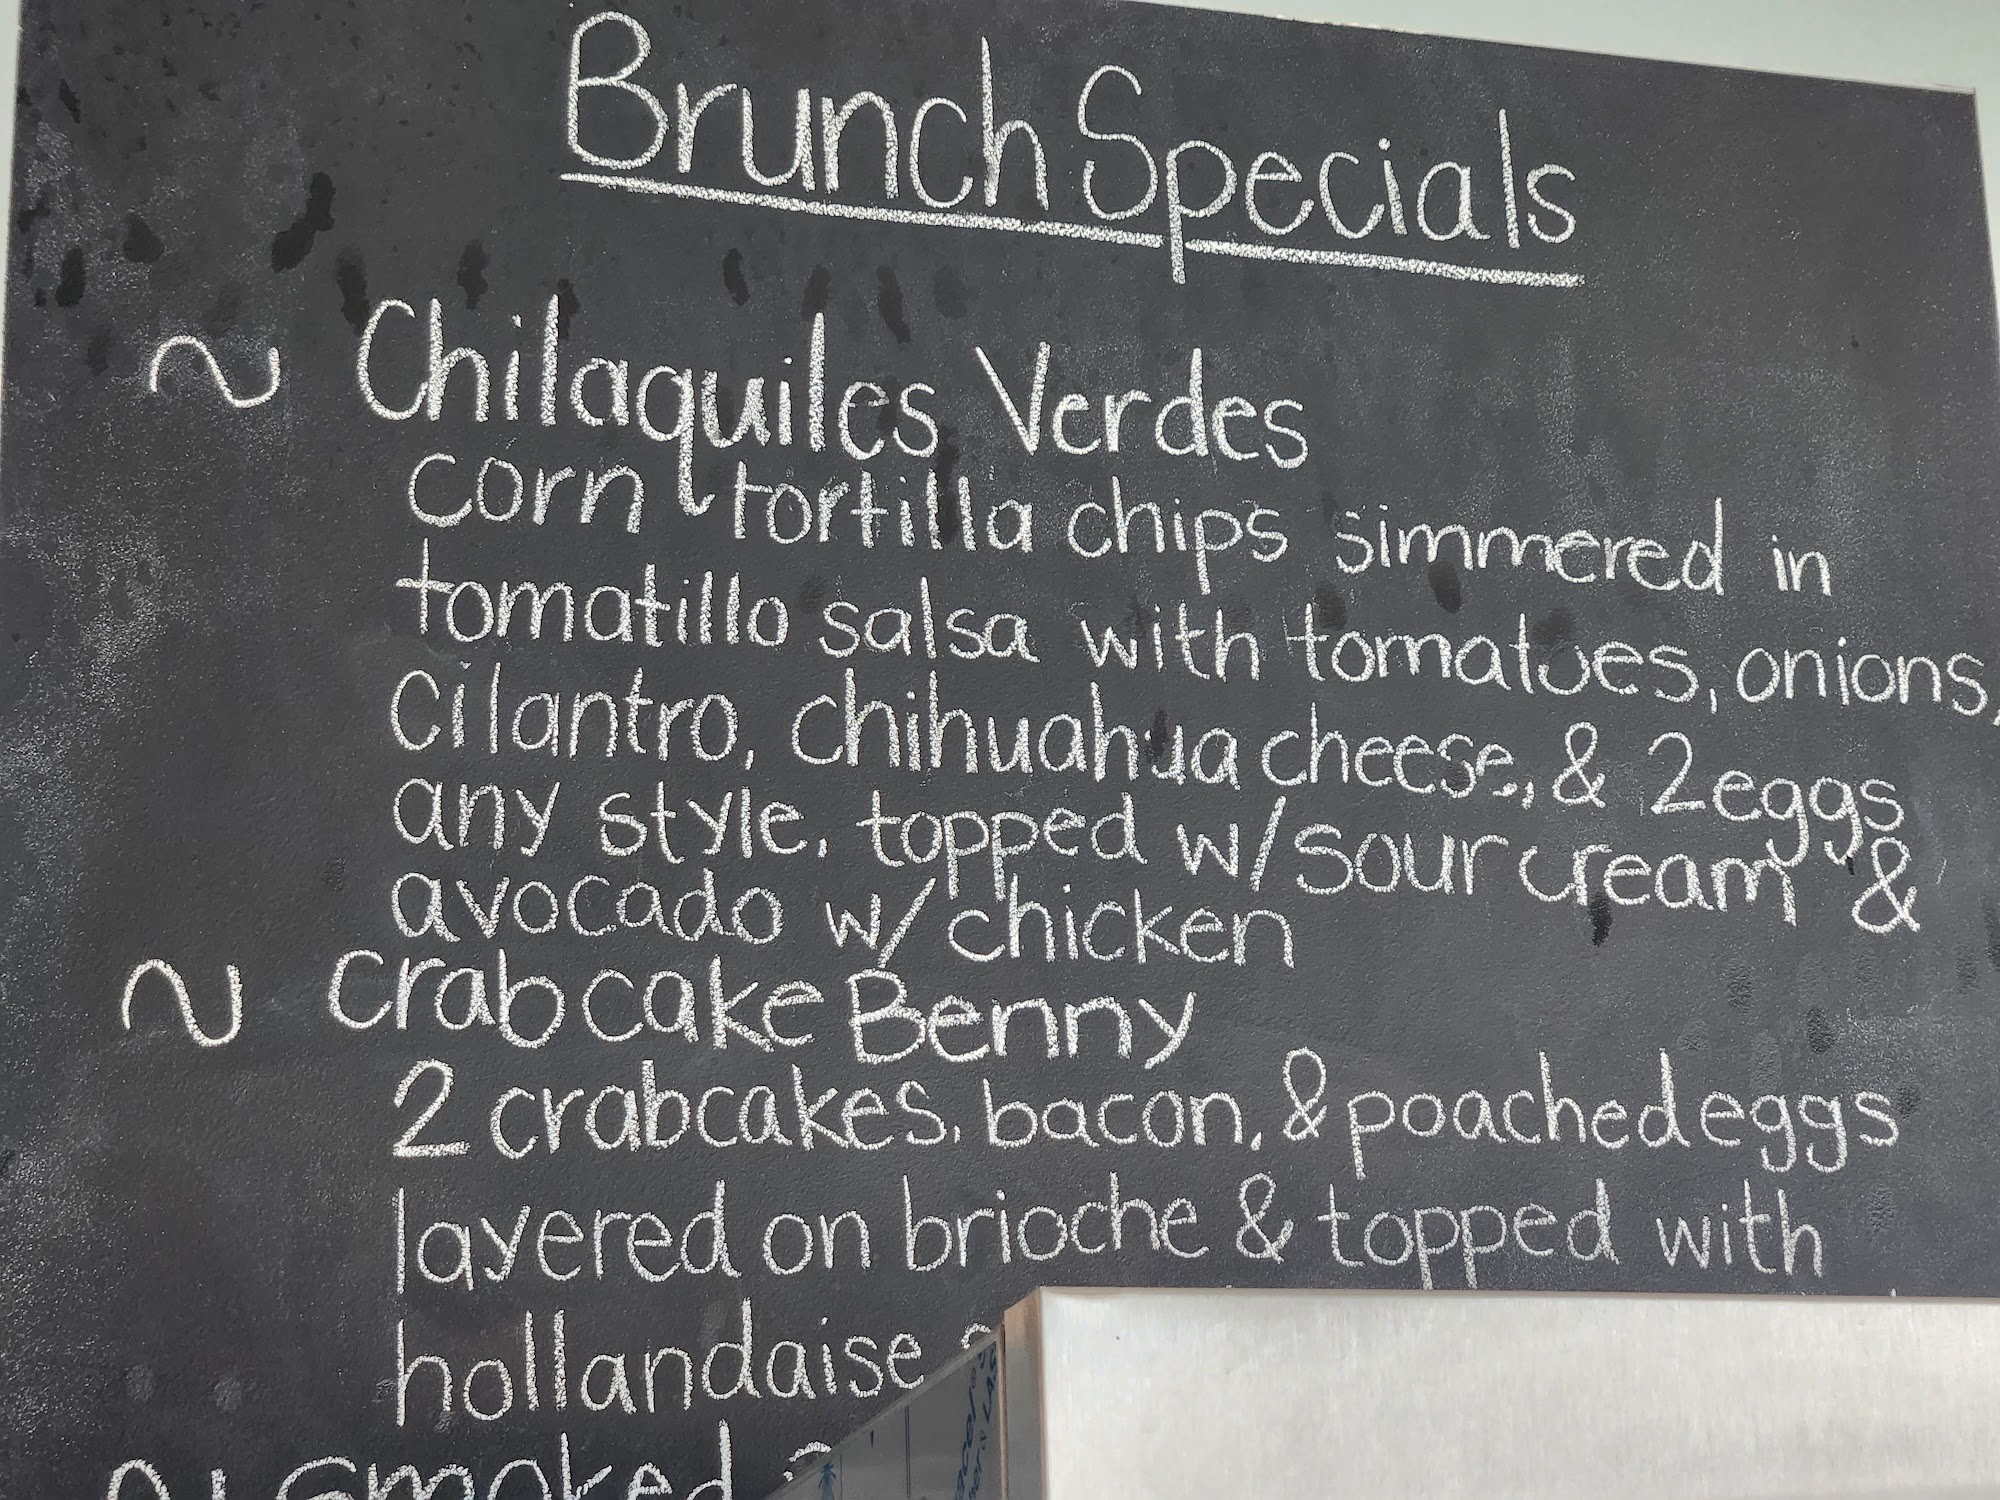 Brunch Specials
~ Chilaquiles Verdes
corn tortilla chips simmered in
tomatillo salsa with tomatoes, onions,
cilantro, chihuahua cheese, & 2 eggs
any style, topped w/ sour cream &
avocado w/ chicken
~ crab cake Benny
2 crabcakes, bacon, & poached eggs
layered on brioche & topped with
hollandaise
~ smoked